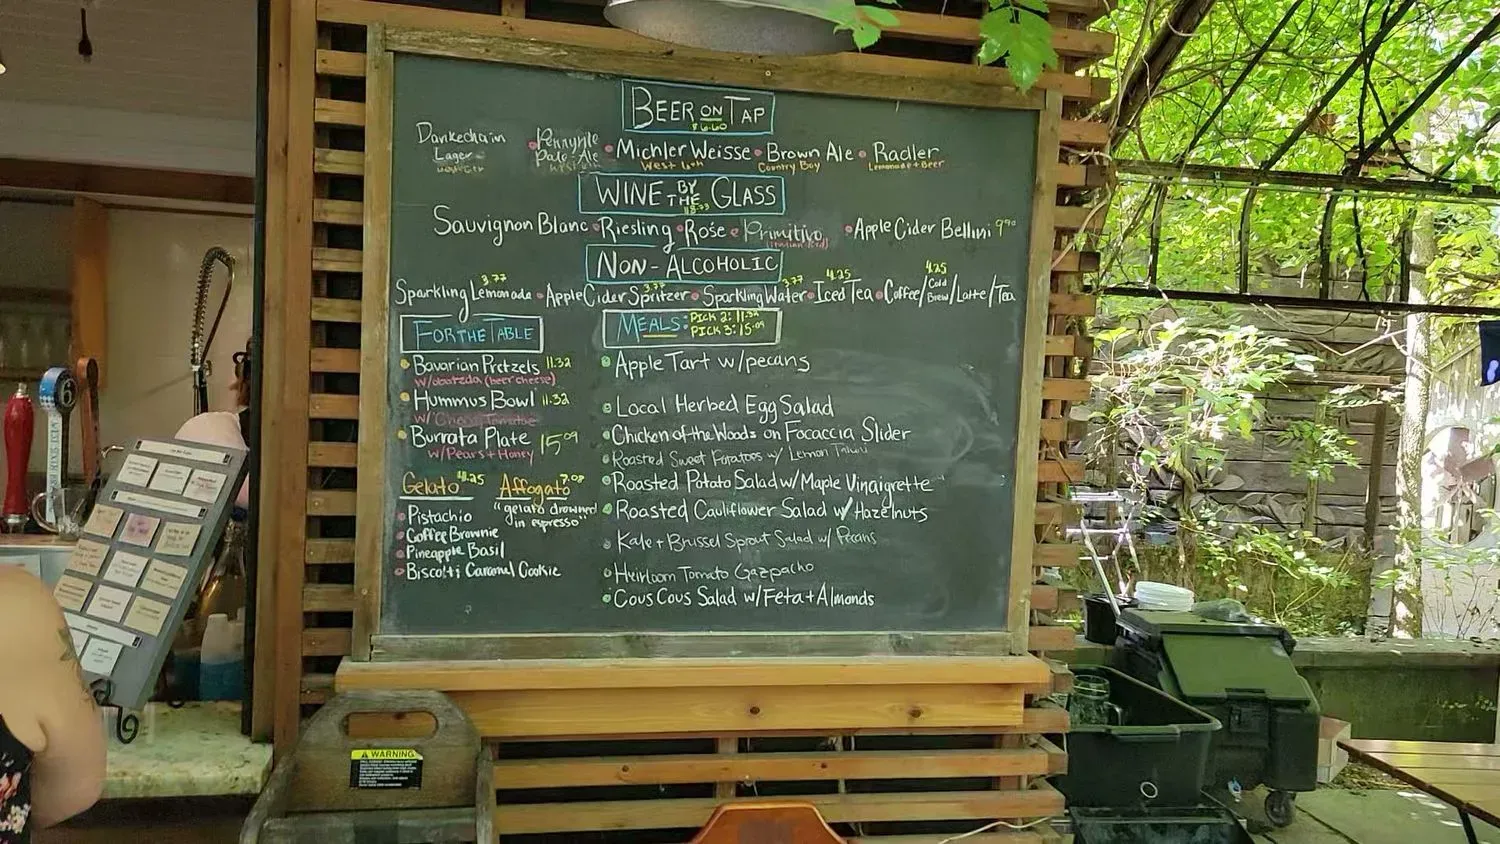 BEER ON TAP
$6.60
Dankechain Lager • Pennyrile Pale Ale • Michler Weisse • Brown Ale • Radler
West 6th Country Boy Lemonade + Beer
WINE BY THE GLASS
Sauvignon Blanc • Riesling • Rosé • Primitivo • Apple Cider Bellini 9
NON-ALCOHOLIC
3.77 3.77 3.77 4.25 4.25
Sparkling Lemonade • Apple Cider Spritzer • Sparkling Water • Iced Tea • Coffee/Cold Brew/Latte/Tea
FOR THE TABLE
• Bavarian Pretzels 11.32
w/obatzda (beer cheese)
• Hummus Bowl 11.32
w/
• Burrata Plate 15.09
w/Pears + Honey
Gelato 4.25
• Pistachio
• Coffee Brownie
• Pineapple Basil
• Biscotti Caramel Cookie
Affogato 7.08
"gelato drowned
in espresso"
MEALS: PICK 2: 11.32
PICK 3: 15.09
• Apple Tart w/pecans
• Local Herbed Egg Salad
• Chicken of the Woods on Focaccia Slider
• Roasted Sweet Potatoes w/ Lemon Tahini
• Roasted Potato Salad w/ Maple Vinaigrette
• Roasted Cauliflower Salad w/ Hazelnuts
• Kale + Brussel Sprout Salad w/ Pecans
• Heirloom Tomato Gazpacho
• Cous Cous Salad w/Feta + Almonds
WARNING